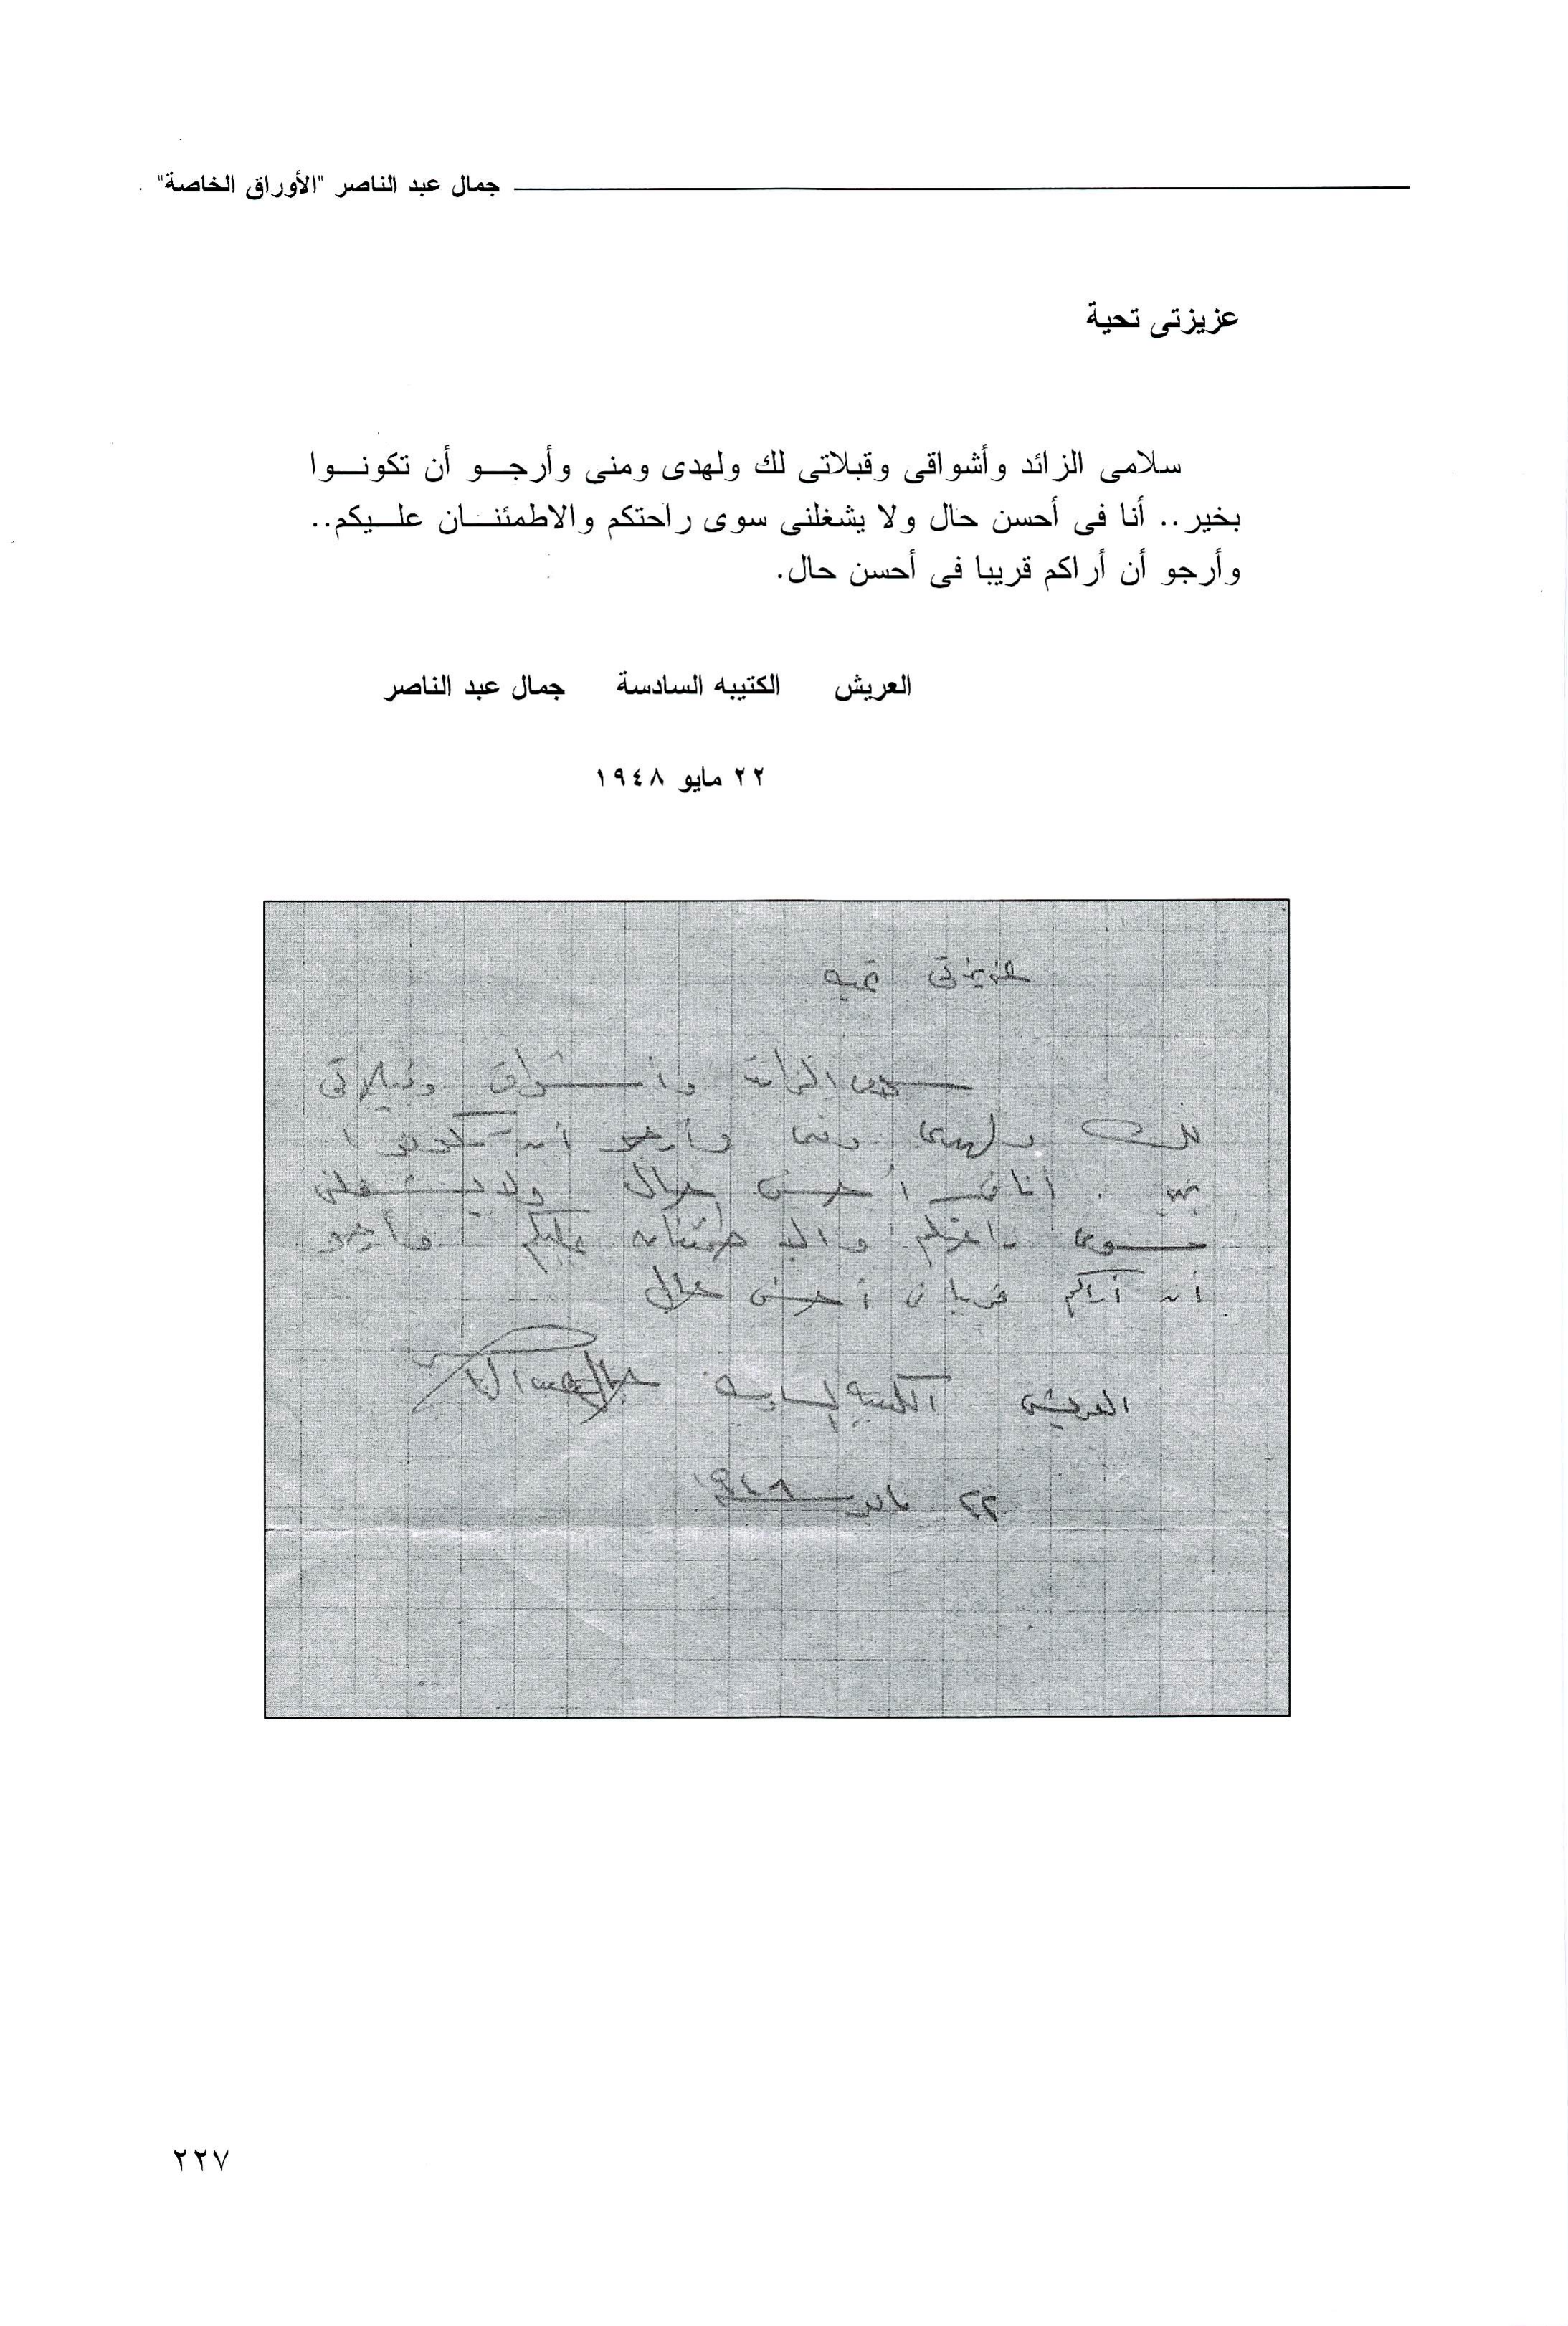 جمال عبد الناصر "الأوراق الخاصة"
عزيزتى تحية
سلامى الزائد وأشواقى وقبلاتى لك ولهدى ومنى وأرجـــو أن تكونـــوا
بخير.. أنا فى أحسن حال ولا يشغلنى سوى راحتكم والاطمئنـــان علـــيكم..
وأرجو أن أراكم قريبا فى أحسن حال.
العريش الكتيبه السادسة جمال عبد الناصر
٢٢ مايو ١٩٤٨
عزيزتى تحيه
سلامى الزائد وأشواقى وقبلاتى
لك ولهدى ومنى وأرجو أن تكونوا
بخير . أنا فى أحسن حال ولا يشغلنى
سوى راحتكم والاطمئنان عليكم وأرجو
أن أراكم قريبا فى أحسن حال
العريش الكتيبه السادسه جمال عبد الناصر
٢٢ مايو ١٩٤٨
٢٢٧